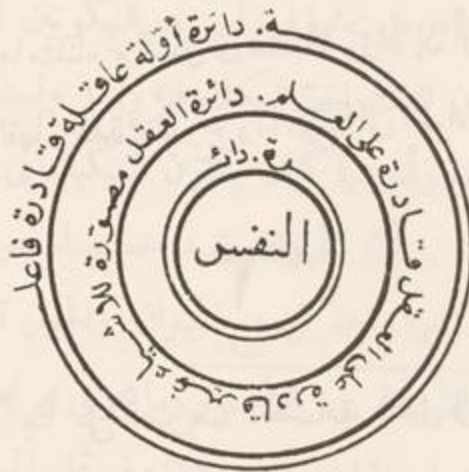 دائرة أولة عاقلة قادرة فاعلة.
دائرة العقل مصورة للاشياء غير قادرة على العقل قادرة على العلم.
دائرة.
النفس